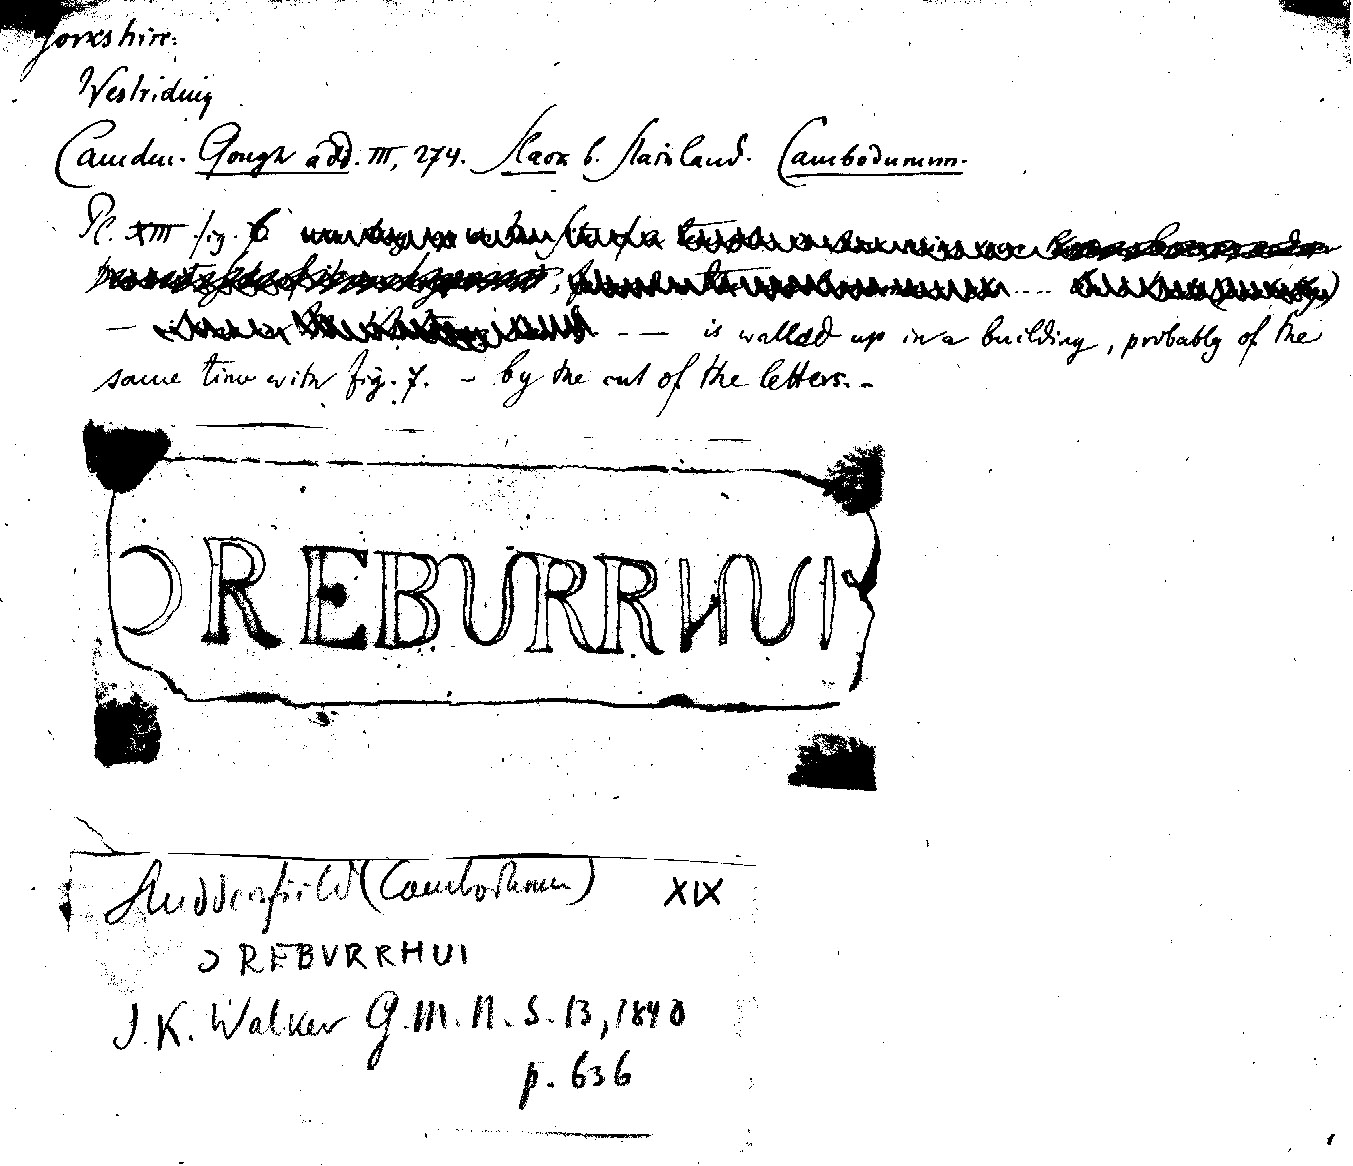 Yorkshire.
Westriding
Camden. Gough add. III, 274. Slack b. Stainland. Cambodunum.
Pl. XIII fig. 6
— is walled up in a building, probably of the
same time with fig. 7. — by the cut of the letters. —
Ɔ REBURRHUI
Huddersfield (Cambodunum) XIX
Ɔ REBVRRHUI
J. K. Walker G. M. N. S. 13, 1840
p. 636